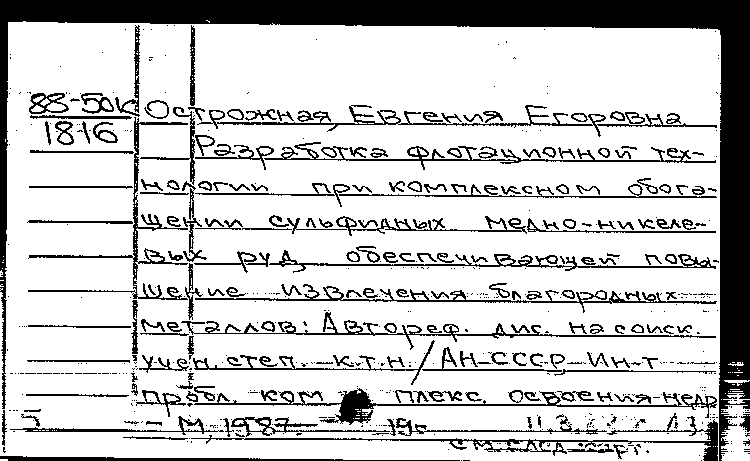 88-50к Острожная, Евгения Егоровна
1816 Разработка флотационной тех-
нологии при комплексном обога-
щении сульфидных медно-никеле-
вых руд, обеспечивающей повы-
шение извлечения благородных
металлов: Автореф. дис. на соиск.
учен. степ. к.т.н. / АН СССР Ин-т
пробл. ком плекс. освоения недр
5 - М, 1987. - 19с
см. след. карт.